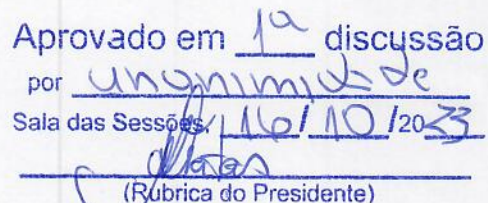 Aprovado em 1ª discussão
por unanimidade
Sala das Sessões, 16/10/2023
(Rubrica do Presidente)